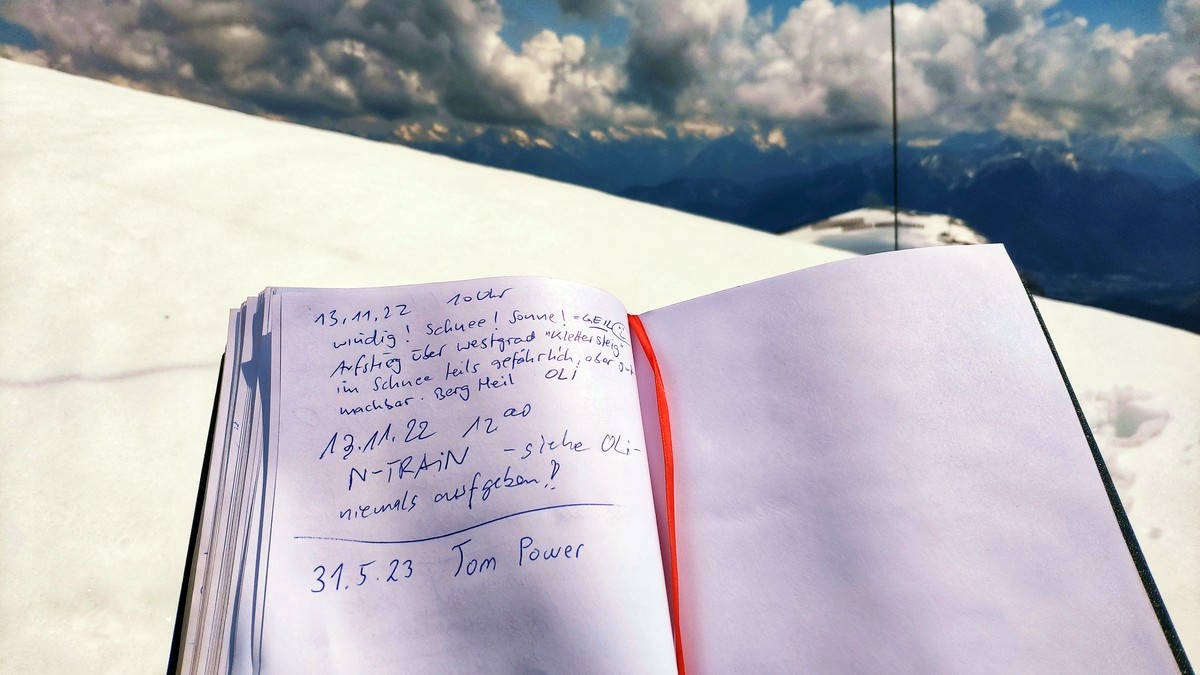 13.11.22 10 Uhr
windig! Schnee! Sonne! = GEIL
Aufstieg über Westgrad "Klettersteig"
im Schnee teils gefährlich, aber
machbar. Berg Heil OLi
13.11.22 12 00
N-TRAiN - siehe OLi -
niemals aufgeben!
31.5.23 Tom Power